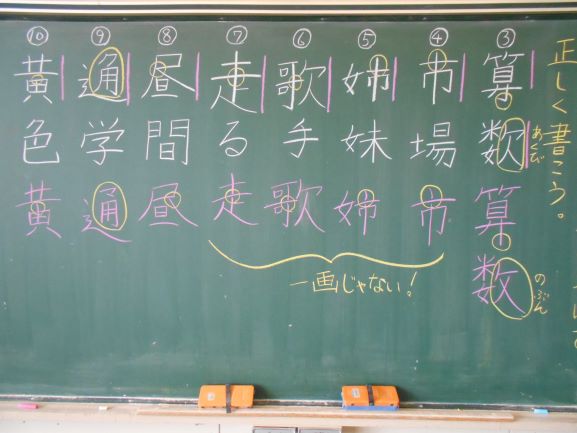 正しく書こう。
③算数算数
あくび
のぶん
④市場市
⑤姉妹姉
⑥歌手歌
⑦走る走
⑧昼間昼
⑨通学通
⑩黄色黄
一画じゃない!